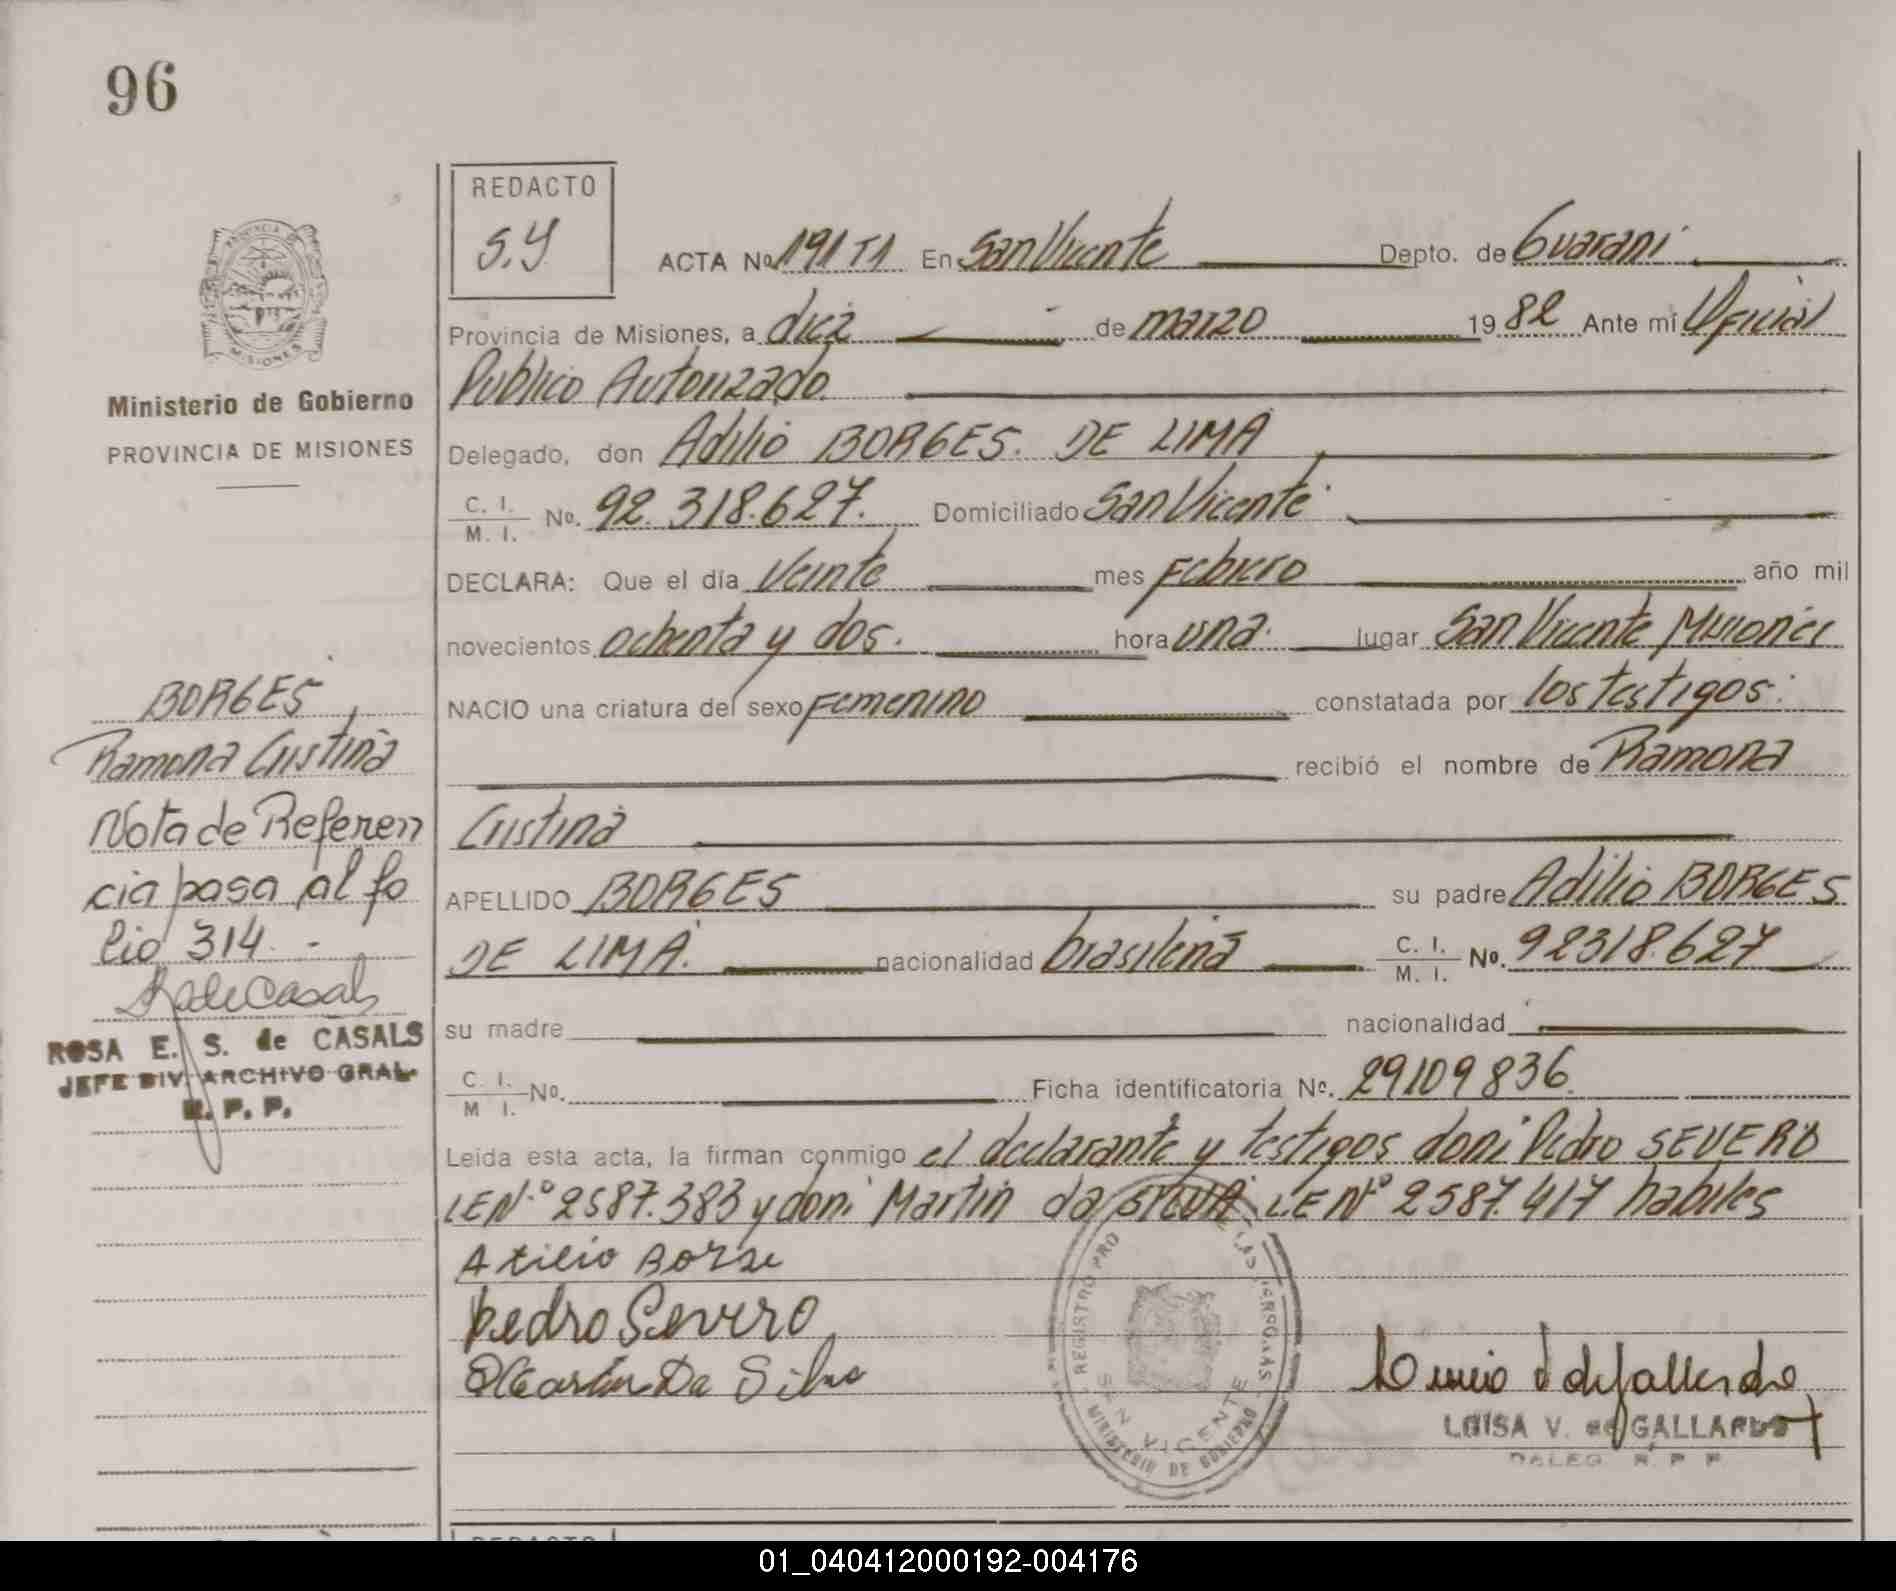 96
REDACTO
S.Y
ACTA No 191 T1 En San Vicente Depto. de Guarani
Provincia de Misiones, a diez de marzo 1982 Ante mí Oficial
Publico Autorizado.
Delegado, don Adilio BORGES. DE LIMA
C. I. / M. I. No. 92.318.627. Domiciliado San Vicente
DECLARA: Que el día Veinte mes Febrero año mil
novecientos ochenta y dos. hora una. lugar San Vicente Misiones
NACIO una criatura del sexo Femenino constatada por los testigos.
recibió el nombre de Ramona
Cristina
APELLIDO BORGES su padre Adilio BORGES
DE LIMA. nacionalidad brasileña C. I. / M. I. No. 92318.627
su madre nacionalidad
C. I. / M I. No. Ficha identificatoria No. 29109836.
Leída esta acta, la firman conmigo el declarante y testigos don: Pedro SEVERO
LE Nº 2587.383 y don: Martin da SILVA LE Nº 2587.417 habiles
Atilio Borge
Pedro Severo
Martin Da Silva
REGISTRO PRO DE LAS PERSONAS
SAN VICENTE
MINISTERIO DE GOBIERNO
LUISA V. de GALLARDO
DALEG. R. P. P.
PROVINCIA DE
MISIONES
Ministerio de Gobierno
PROVINCIA DE MISIONES
BORGES
Ramona Cristina
Nota de Referen
cia pasa al fo
lio 314. -
R de Casals
ROSA E. S. de CASALS
JEFE DIV. ARCHIVO GRAL.
R. P. P.
REDACTO
01_040412000192-004176